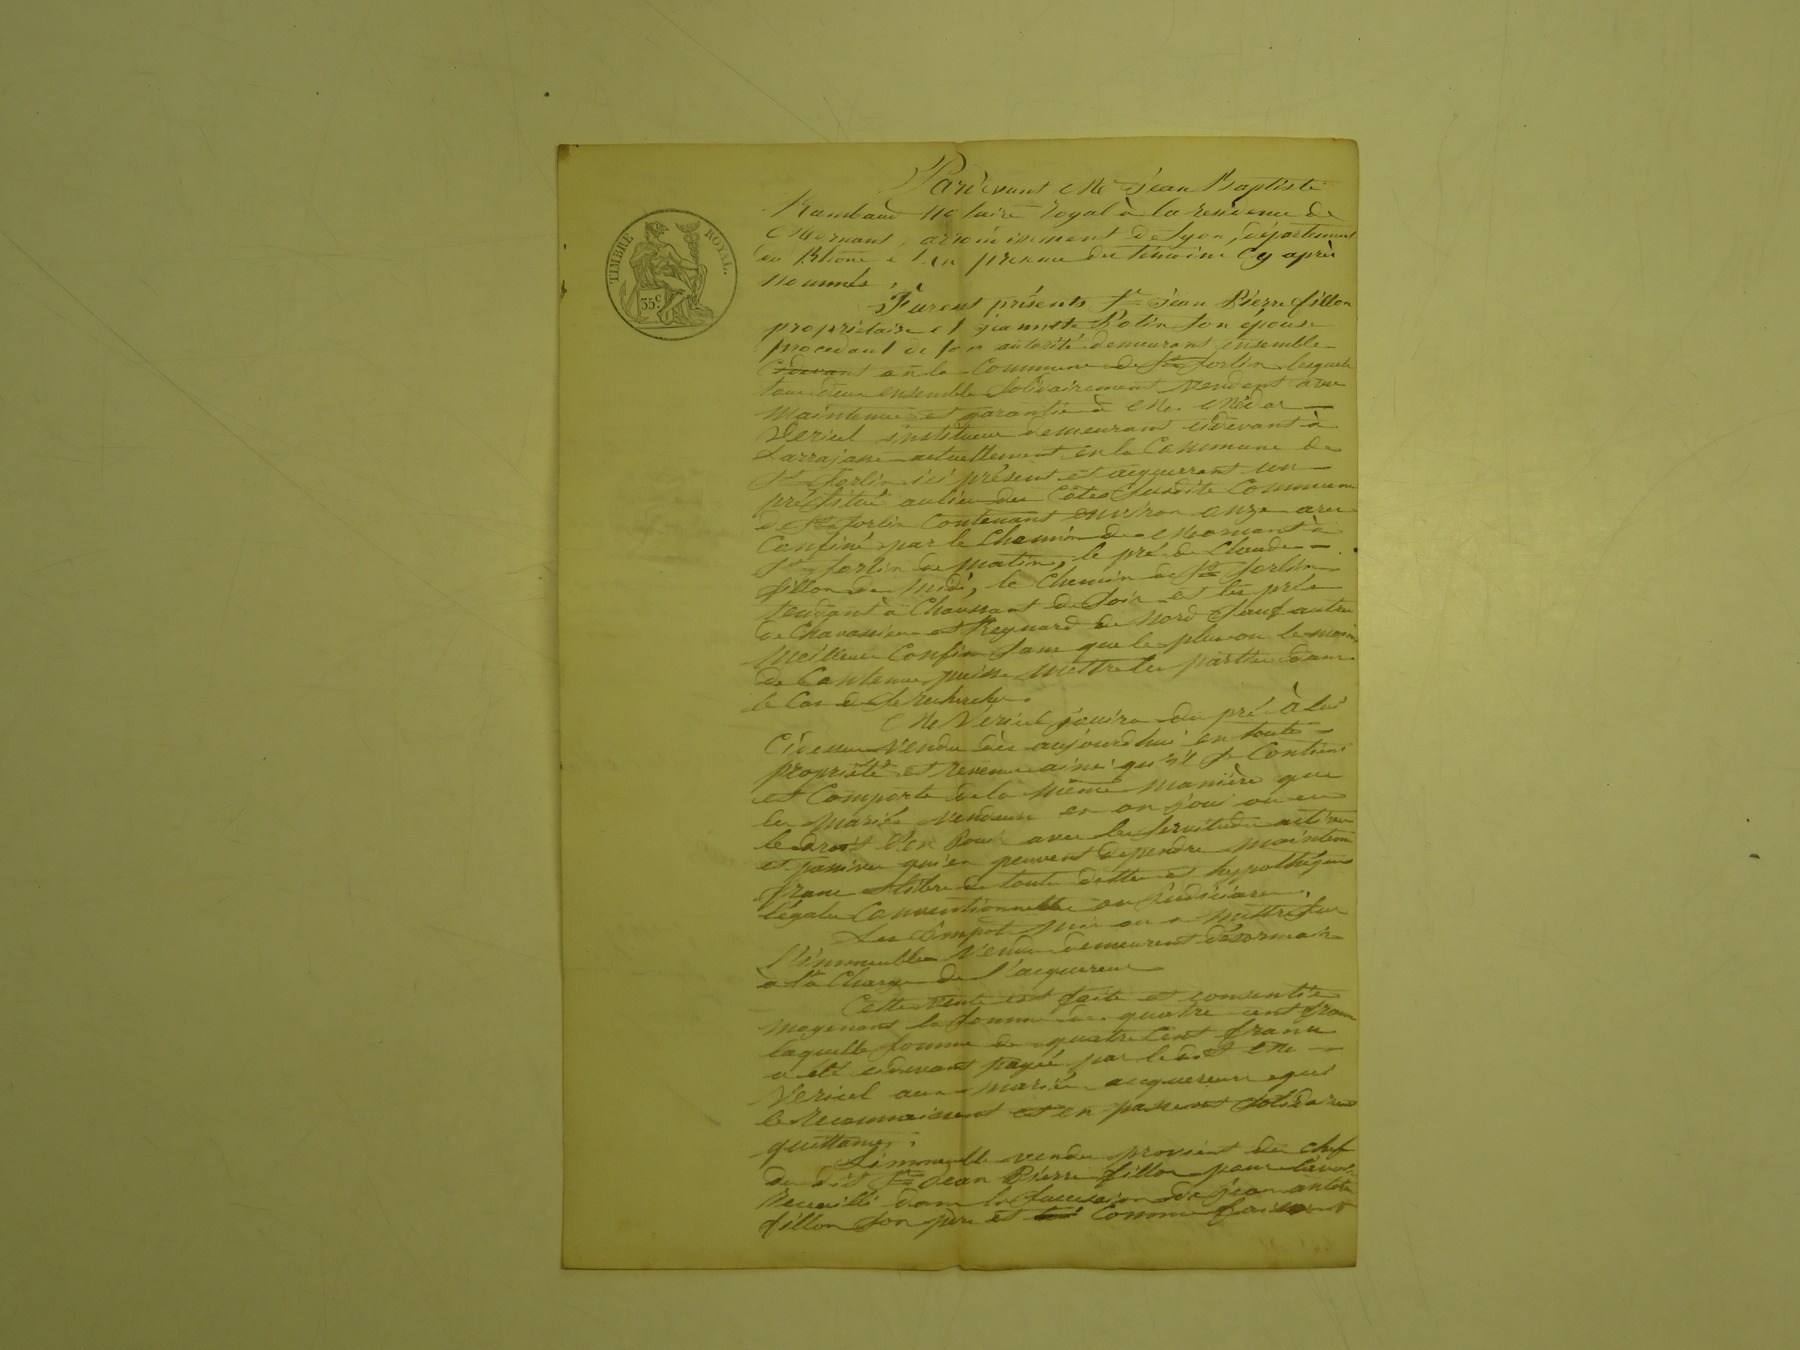 TIMBRE ROYAL.
35c
Pardevant Me Jean Baptiste
Rambaud Notaire royal à la residence de
Mornant, arrondissement de Lyon, département
du Rhône et en presence des témoins cy après
nommés,
Furent présents Sr Jean Pierre fillon
propriétaire et jeannette Potin son épouse
procedant de son autorité demeurant ensemble
en la Commune de St Sorlin lesquels
tous deux ensemble solidairement vendent avec
maintenue et garantie à Me Médar
Vericel instituteur demeurant cidevant à
Larrajasse actuellement en la Commune de
St Sorlin ici présent et acquerrant un
pré situé au lieu des Côtes susdite Commune
de St Sorlin Contenant environ onze ares
Confiné par le Chemin de Mornant à
St Sorlin de matin, le pré de Claude
fillon de midi, le Chemin de St Sorlin
tendant à Chaussant de soir et les prés
de Chavassieux et Reynard de Nord sauf autres
meilleurs Confins sans que le plus ou le moins
de Contenue puisse mettre les parties dans
le Cas de se rechercher.
Me Vericel jouira du pré à lui
Cidessus vendu dès aujourdhui en toute
propriété et revenus ainsi qu'il se Contient
et Comporte de la même manière que
les mariés vendeurs en on joui ou eu
le droit d'en Jouir avec les servitudes actives
et passives qui en peuvent dependre maintenu
franc et libre de toute dette et hypothèques
légales Conventionnelles ou Judiciares.
Les impots mis ou a mettre sur
l'immeuble Vendu demeurent désormais
à la Charge de l'acquereur
Cette vente est faite et consentie
moyenant la somme de quatre cent francs
laquelle somme de quatre Cent francs
a été cidevant payée par le dit Me
Vericel aux mariés acquereurs qui
le reconnaissent et en passent solidairement
quittance.
L'immeuble vendu provient du chef
du dit Sr Jean Pierre fillon pour l'avoir
Recueilli dans la succession de Jean antoine
fillon son père et Comme faisant